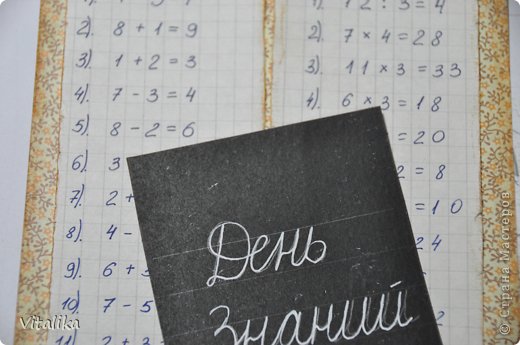 2). 8 + 1 = 9
3). 1 + 2 = 3
4). 7 - 3 = 4
5). 8 - 2 = 6
6). 3
7). 2 +
8). 4 -
9). 6 +
10). 7 - 5
11). 2 + 3
1). 12 : 3 = 4
2). 7 × 4 = 28
3). 11 × 3 = 33
4). 6 × 3 = 18
= 20
2 = 8
= 10
24
2
День
знаний
Vitalika
© Страна Мастеров